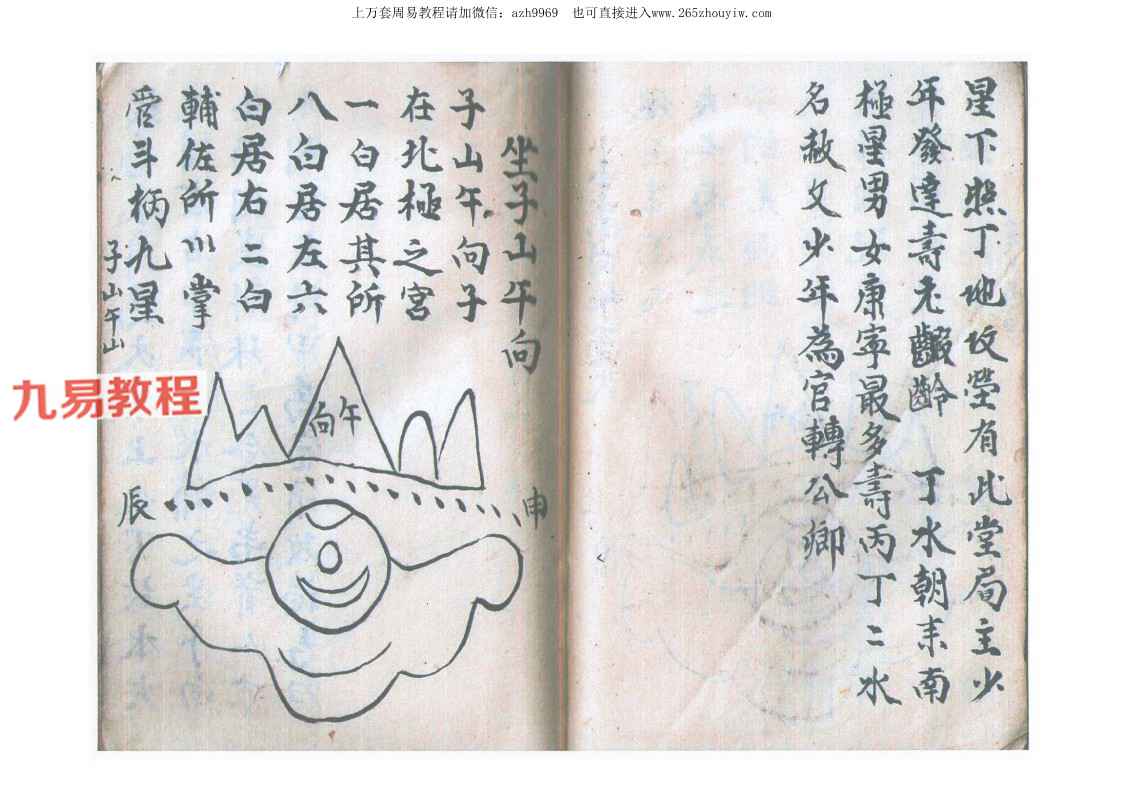 上万套周易教程请加微信：azh9969 也可直接进入www.265zhouyiw.com
星下照丁地改塋有此堂局主少
年發達壽老齡 丁水朝來南
極星男女康寧最多壽丙丁二水
名赦文少年為官轉公卿
坐子山午向
子山午向子
在北極之宮
一白居其所
八白居左六
白居右二白
輔佐所以掌
斗柄九星
子山午山
九易教程
午向
辰
申